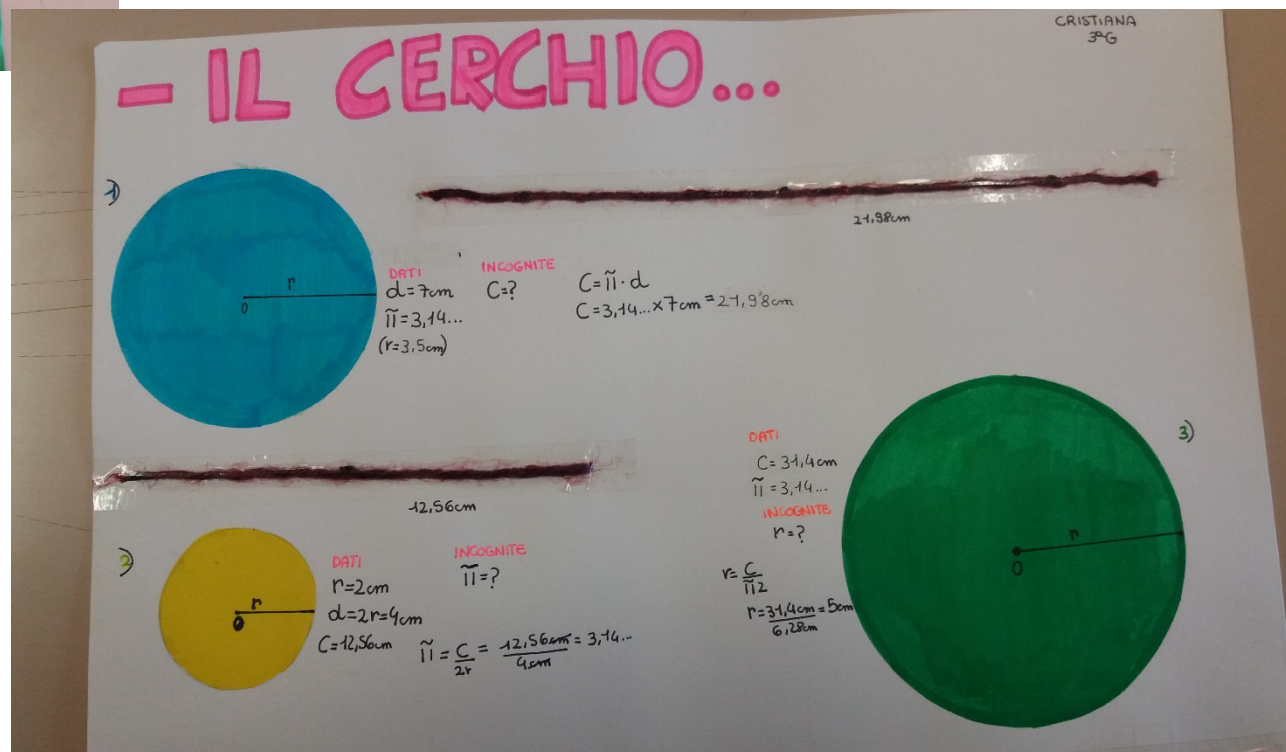 CRISTIANA
3ªG
- IL CERCHIO...
1)
r
O
21,98cm
DATI
d=7cm
π=3,14...
(r=3,5cm)
INCOGNITE
C=?
C=π·d
C=3,14...×7cm=21,98cm
12,56cm
2)
r
O
DATI
r=2cm
d=2r=4cm
C=12,56cm
INCOGNITE
π=?
π=C/2r=12,56cm/4cm=3,14...
3)
DATI
C=31,4cm
π=3,14...
INCOGNITE
r=?
r=C/π2
r=31,4cm/6,28cm=5cm
r
O